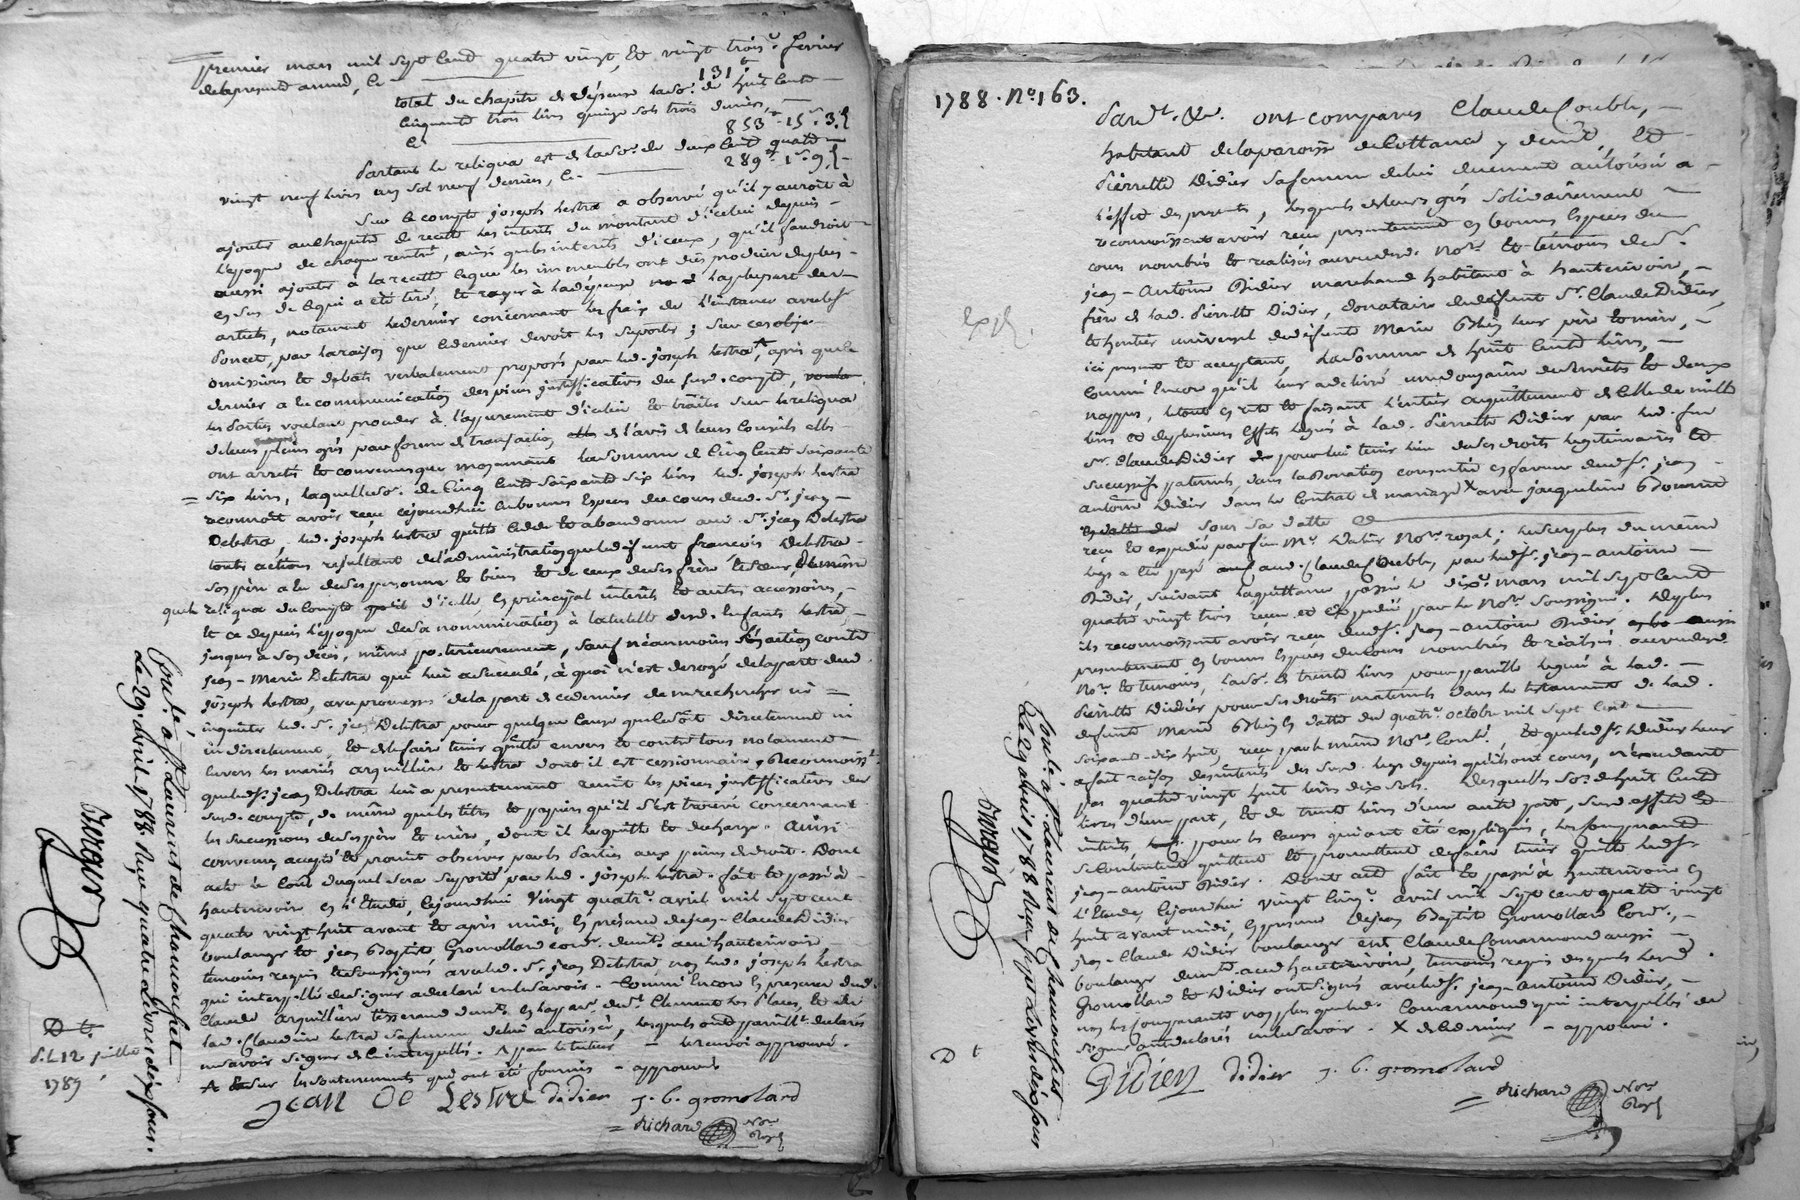 premier mars mil sept cent quatre vingt, et vingt trois.e fevrier
de la presente année, Cy
131 tt
total du chapitre de depense la so.e de huit cents
cinquante trois livres quinze sols trois deniers,
Cy 853 tt 15 s. 3 d
Partant le reliqua est de la so.e de deux cent quatre
289 tt 1 s. 9 d
vingt neuf livres un sol neuf deniers, Cy
Sur le compte joseph lestra a observé qu'il y auroit à
ajouter au chapitre de recette les interets du montant d'icelui depuis
l'epoque de chaque rentré, ainsi que les interets d'iceux, qu'il faudroit
aussi ajouter à la recette ce que les immeubles ont dûs produire de plus
en sus de ce qui a été tiré, et rayer à la depense la plupart des
articles, notament le dernier concernant les frais de l'instance avec le s.r
Poncet, par la raison que ce dernier devoit les suporter ; sur ces obje-
omissions et debats verbalement proposés par led. joseph lestra, après que le
dernier a eu communication des pieces justifficatives du susd. compte,
les Parties voulant proceder à l'appurement d'icelui et traiter sur le reliqua
de leurs pleins grés par forme de transaction de l'avis de leurs conseils elles
ont arreté et convenu que moyennant la somme de cinq cents soixante
= six livres, laquelle so.e de cinq cents soixante six livres led. joseph lestra
reconnoît avoir reçu cejourdhui en bonnes Especes du cours dud. s.r jean
Delestra, led. joseph lestra quitte cede et abandonne aud. s.r jean Delestra
touts actions resultant de l'administration que led. defunt françois Delestra
son père a eu de ses personne et biens et de ceux de ses frère et sœur, de même
que le reliqua du compte d'icelle, en principal interets et autres accessoires,
et ce depuis l'epoque de sa nommination à la tutelle desd. enfants lestra,
jusques à son décès, même posterieurement, sauf néanmoins son action contre
jean-Marie Delestra qui lui a succedé, à quoi n'est derogé de la part dud.
joseph lestra, avec promesse de la part de ce dernier de ne rechercher ni =
inquieter led. s.r jean Delestra pour quelque cause que ce soit directement ni
indirectement, et de le faire tenir quitte envers et contre tous notament
envers les mariés arquillier et lestra dont il est cessionnaire, Reconnoiss.t
que led. s.r jean Delestra lui a presentement remit les pieces justifficatives du
susd. compte, de même que les titres et papiers qu'il s'est trouvé concernant
les successions de ses père et mère, dont il les quitte et decharge. Ainsi
convenu, accepté et promit observer par les Parties aux peines de droit. Dont
acte le cout duquel sera suporté par led. joseph lestra. fait et passé à
hauterivoire en l'Etude, cejourdhui vingt quatr.e avril mil sept cent
quatre vingt huit avant et après midi, en presence de jean-Claude Didier
boulanger et jean Baptiste Gromollard cord.r demt. aud. hauterivoire,
temoins requis et soussignés avec led. s.r jean Delestra non led. joseph lestra
qui interpellé de signer a declaré ne le savoir. Comm'encore en presence dud.
Claude Arquillier tisserand demt. en la par.se de s.t Clement les Places, et de
lad. Claudine lestra sa femme de lui autorisée, lesquels ont pareill.t declarés
ne savoir signer de ce interpellés. le renvoi approuvé.
A et sur les soutenements qui ont été fournis - approuvé
jean De Lestre didier j. b. gromolard
= Richard No.re Royal
Coul.e à S.t Laurent de Chamousset
Le 29 avril 1788 Reçu quatre Livres dix sous.
Berger
D t.
d. L 12 juillet
1789
1788. No. 163.
Pard.t &c. ont comparus Claude Coubble,
habitant de la paroisse de Cottance y demt., et
Pierrette Didier sa femme de lui duement autorisée a
l'effet des presentes, lesquels de leurs grés solidairement
reconnoissent avoir reçu presentement en bonnes Especes du
cours nombrés et realisés au vu desd. No.re et temoins de s.r
jean-Antoine Didier marchand habitant à hauterivoire,
frère de lad. Pierrette Didier, donataire de defunt s.r Claude Didier,
et heritier universel de defunte Marie leur père et mère,
ici present et acceptant, la somme de huit cents livres,
comm'encore qu'il leur a delivré une douzaine de serviettes et deux
nappes, le tout en reste et faisant l'entier acquittement de celle de mille
livres et de plusieurs effets legués à lad. Pierrette Didier par led. feu
s.r Claude Didier pour lui tenir lieu de ses droits legitimaires et
successifs paternels, dans la donation consentie en faveur dud. s.r jean
antoine Didier dans le Contrat de mariage X avec jacqueline
sous sa datte
reçu et expedié par feu M.e No.re royal; le surplus du même
legs a été payé aud. Claude Coubble, par led. s.r jean-antoine
Didier, suivant la quittance passée le dix.e mars mil sept cent
quatre vingt trois reçue et expediée par le No.re soussigné. De plus
ils reconnoissent avoir reçu dud. s.r jean-Antoine Didier aussi
presentement en bonnes Especes du cours nombrés et réalisés au vu desd.
No.re et temoins, la so.e de trente livres pour pareille leguée à lad.
Pierrette Didier pour ses droits maternels dans le testament de lad.
defunte Marie en datte du quatr.e octobre mil sept cent
soixante-dix huit, reçu par le même No.re Cont.é et que led. s.r Didier leur
a fait raison des interets des susd. legs depuis qu'ils ont cours, n'excedant
pas quatre vingt huit livres dix sols. Desquelles so.es de huit cents
livres d'une part, et de trente livres d'une autre part, susd. effets et
interets pour les causes qui ont été expliquées, les
se contentent quittent et promettent de faire tenir quitte led. s.r
jean-antoine Didier. Dont acte fait et passé à hauterivoire en
l'Etude, cejourdhui vingt cinq.e avril mil sept cent quatre vingt
huit avant midi, en presence de jean Baptiste Gromollard Cord.r,
jean-Claude Didier boulanger et Claude Comarmond aussi
boulanger demt. aud. hauterivoire, temoins requis desquels lesd.
Gromollard et Didier ont signés avec led. s.r jean-antoine Didier,
non les non plus que led. Comarmond qui interpellés de
signer ont declarés ne le savoir. X de ce dernier - approuvé.
Didier didier j. b. gromolard
= Richard No.re Royal
exp.
Coul.e à S.t Laurent de Chamousset
Le 29 avril 1788 Reçu sept Livres dix sous
Berger
D t